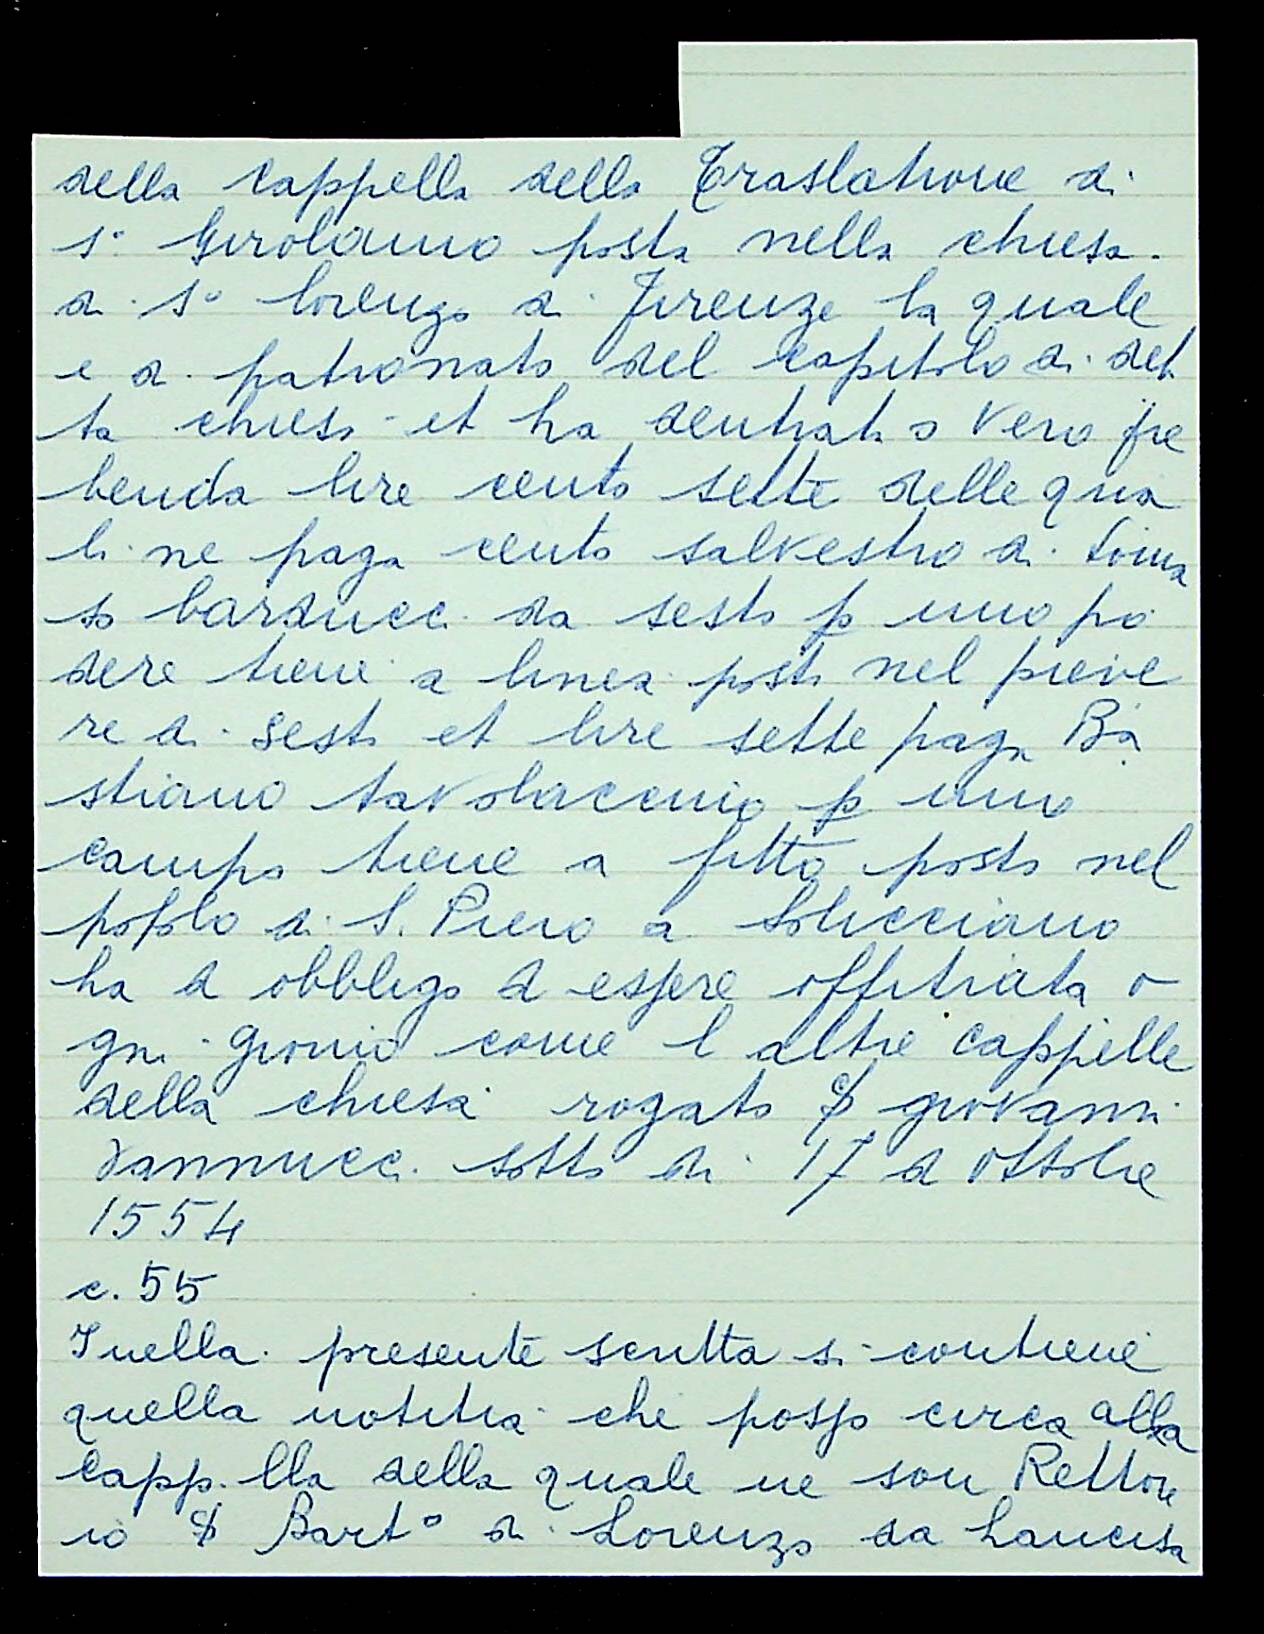 della cappella della Traslatione di
s.º Girolamo posta nella chiesa
di s.º lorenzo di Firenze la quale
e di patronato del capitolo di det
ta chiesa et ha dentrata o vero pre
benda lire cento sette delle qua
li ne paga cento salvestro di Toma
so barducci da sesto p uno po
dere tiene a linea posto nel pieve
re di Sesto et lire sette paga Ba
stiano tavolaccino p uno
campo tiene a fitto posto nel
popolo di S. Piero a Solicciano
ha d obbligo d essere offitiata o
gni giorno come l altre cappelle
della chiesa rogato S giovanni
Vannucci sotto di 17 d ottobre
1554
c. 55
Inella presente scritta si contiene
quella notitia che posso circa alla
capp.lla della quale ne son Rettore
io S Bart.º di Lorenzo da Lancisa